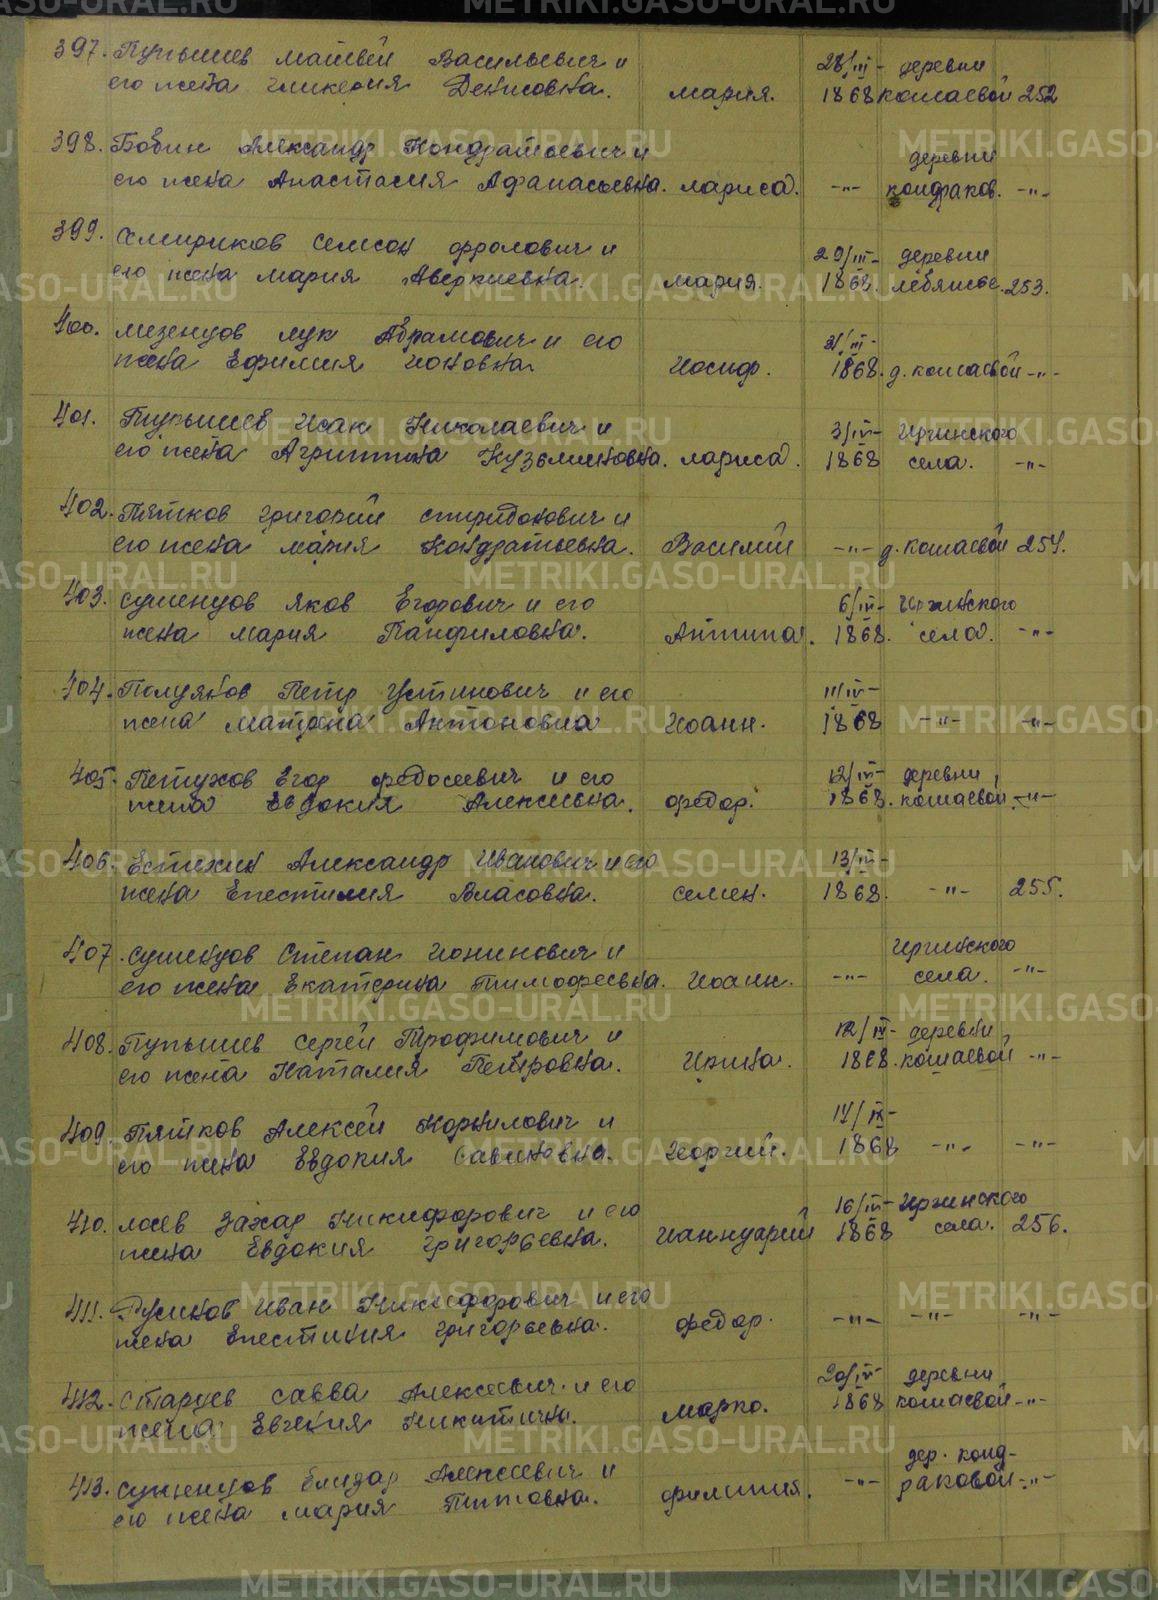 397. Пупышев Матвей Васильевич и
его жена Гликерия Денисовна. Мария. 28/III- 1868 деревни Кошаевой 252
398. Бобин Александр Кондратьевич и
его жена Анастасия Афанасьевна. Лариса. -"- деревни Кондраков. -"-
399. Семсон Фролович и
его жена Мария Аверкиевна. Мария. 29/III- 1868. деревни 253.
400. Мезенцов Лук Абрамович и его
жена Ефимия Ионовна. Иосиф. 31/III- 1868. д. Кошаевой -"-
401. Пупышев Исак Николаевич и
его жена Агриппина Кузьминовна. Лариса. 3/IV- 1868 Иргинского села. -"-
402. Пятков Григорий Спиридонович и
его жена Мария Кондратьевна. Василий -"- д. Кошаевой 254.
403. Сушенцов Яков Егорович и его
жена Мария Панфиловна. Антипа. 6/IV- 1868. Иргинского села. -"-
404. Полуяков Петр Устинович и его
жена Матрена Антоновна Иоанн. 11/IV- 1868 -"- -"-
405. Петухов Егор Федосеевич и его
жена Евдокия Алексеевна. Федор. 12/IV- 1868. деревни Кошаевой. -"-
406. Естехин Александр Иванович и его
жена Епестимия Власовна. Семен. 13/IV- 1868. -"- 255.
407. Сушенцов Степан Ионинович и
его жена Екатерина Тимофеевна. Иоанн. -"- Иргинского села. -"-
408. Пупышев Сергей Трофимович и
его жена Наталия Петровна. Ирина. 12/IV- 1868. деревни Кошаевой -"-
409. Пятков Алексей Корнилович и
его жена Евдокия Савиновна. Георгий. 14/IV- 1868 -"- -"-
410. Лоев Захар Никифорович и его
жена Евдокия Григорьевна. Ианнуарий 16/IV- 1868 Иргинского села. 256.
411. Русинов Иван Никифорович и его
жена Епестимия Григорьевна. Федор. -"- -"- -"-
412. Старцев Савва Алексеевич и его
жена Евгения Никитична. Марко. 20/IV- 1868 деревни Кошаевой -"-
413. Сушенцов Елизар Алексеевич и
его жена Мария Титовна. Филиппия. -"- дер. Конд-
раковой -"-
METRIKI.GASO-URAL.RU